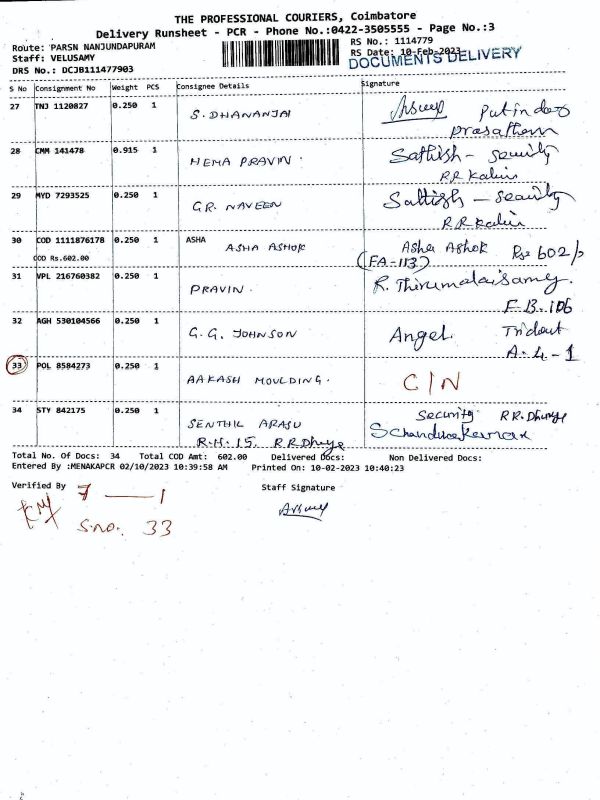 THE PROFESSIONAL COURIERS, Coimbatore
Delivery Runsheet - PCR - Phone No.:0422-3505555 - Page No.:3
Route: PARSN NANJUNDAPURAM
RS No.: 1114779
Staff: VELUSAMY
RS Date: 10-Feb-2023
DOCUMENTS DELIVERY
DRS No.: DCJB111477903
S No Consignment No Weight PCS Consignee Details Signature
27 TNJ 1120827 0.250 1 S. DHANANJAI Put in door
28 CMM 141478 0.915 1 HEMA PRAVIN. Sathish - Security
R.R Kabir
29 MYD 7293525 0.250 1 G.R. NAVEEN Sathish - Security
R.R Kabir
30 COD 1111876178 0.250 1 ASHA
ASHA ASHOK Asha Ashok Rs 602/
COD Rs.602.00 (FA-113)
31 VPL 216760382 0.250 1 PRAVIN. R. Thirumalaisamy.
F.B.106
32 AGH 530104566 0.250 1 G.G. JOHNSON Angel Trident
A-4-1
33 POL 8584273 0.250 1 AAKASH MOULDING. C/N
34 STY 842175 0.250 1 SENTHIL ARASU Security R.R.
R.H. 15. R.R
Total No. Of Docs: 34 Total COD Amt: 602.00 Delivered Docs: Non Delivered Docs:
Entered By :MENAKAPCR 02/10/2023 10:39:58 AM Printed On: 10-02-2023 10:40:23
Verified By 7 — 1
Staff Signature
S.no. 33